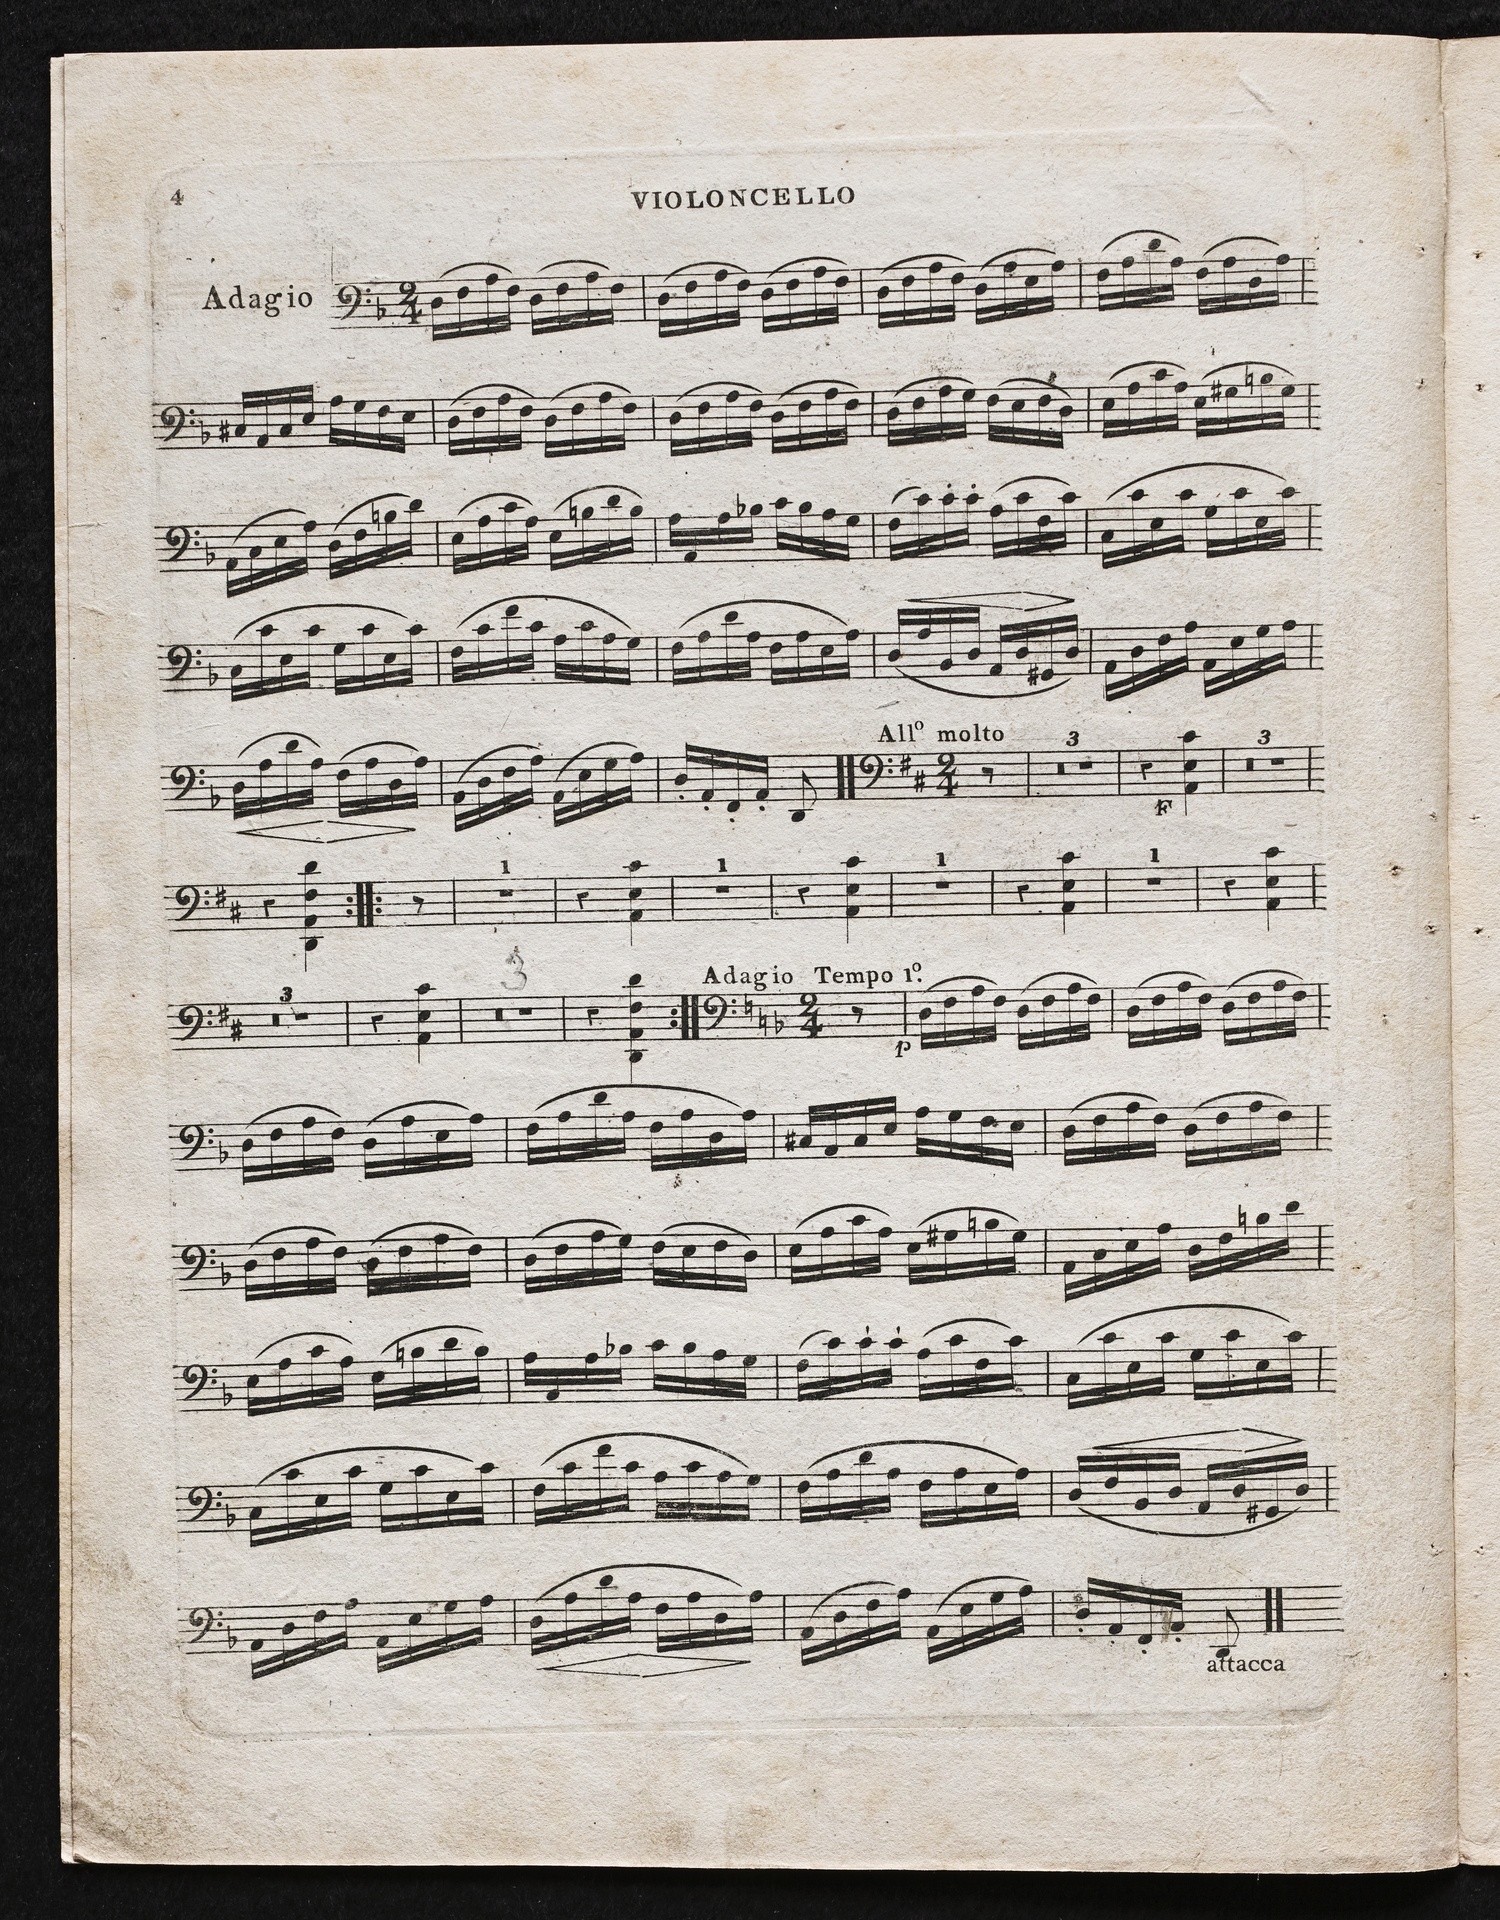 4
VIOLONCELLO
Adagio
2 4
All° molto
2 4
3
3
F
1
1
1
1
3
3
Adagio Tempo 1°.
2 4
P
attacca